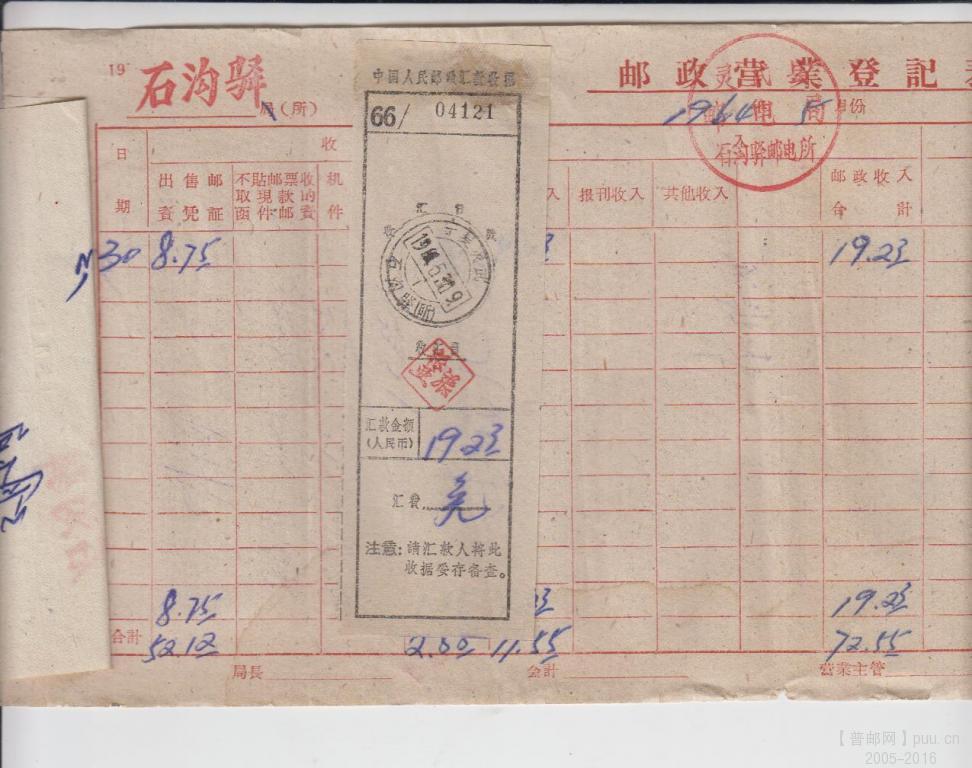 19
石沟驿
局(所)
邮政营业登記
1964年 5 月份
灵武
邮电局
石沟驿邮电所
中国人民邮政汇款收据
66/ 04121
日期
收
出售邮資凭証
不貼邮票收取現款的函件邮資
机件
入
报刊收入
其他收入
邮政收入合計
30 8.75 19.23
汇款金额(人民币) 19.23
汇費 免
注意:請汇款人将此
收据妥存备查。
8.75 19.23
合計 52.12 2.00 11.55 72.55
局長
会計
营業主管
【普邮网】puu.cn
2005-2016